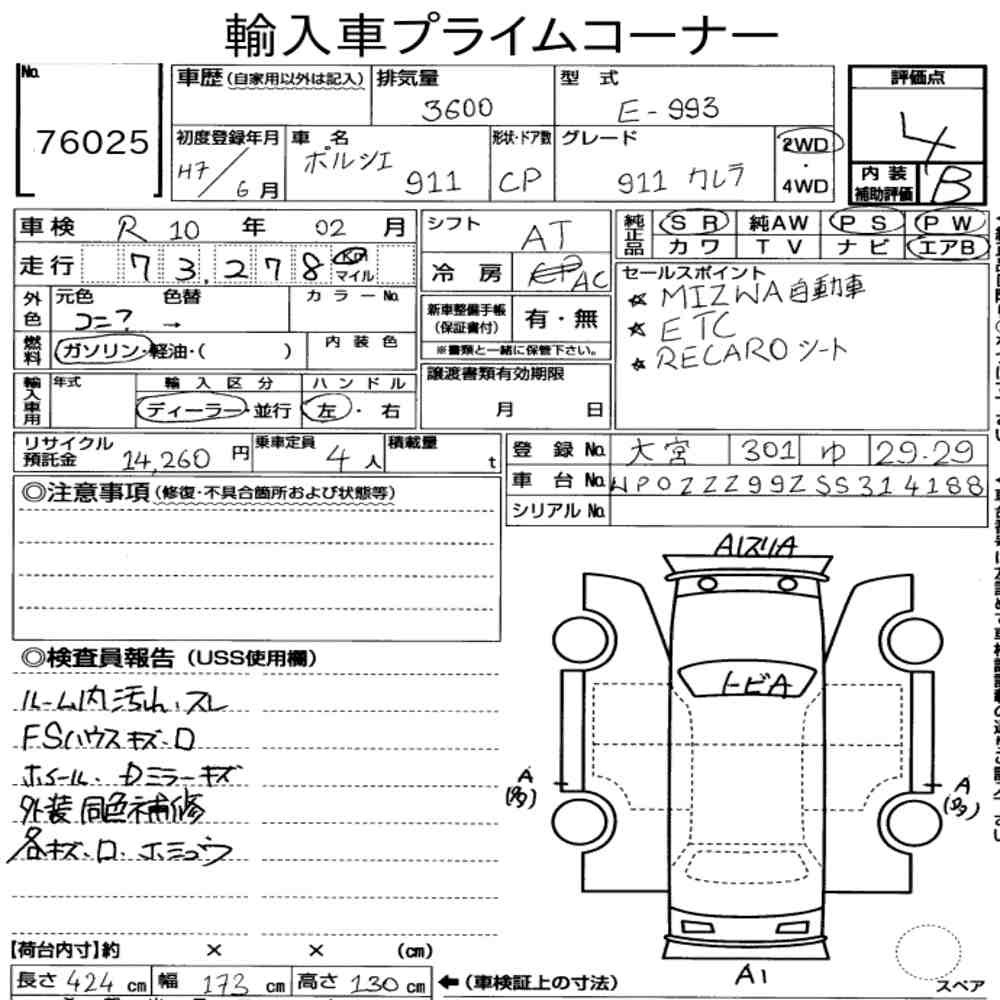 輸入車プライムコーナー
No.
76025
車歴(自家用以外は記入)
排気量
3600
型 式
E-993
評価点
4
初度登録年月
H7/6月
車 名
ポルシェ
911
形状・ドア数
CP
グレード
911 カレラ
2WD
・
4WD
内 装
補助評価
B
車検 R10年 02月
シフト
AT
純正品
SR 純AW PS PW
カワ TV ナビ エアB
走行 73,278 Km
マイル
冷 房
AC
セールスポイント
☆ MIZWA自動車
☆ ETC
☆ RECAROシート
外色
元色 色替 カラーNo.
コニ? →
新車整備手帳
(保証書付)
有・無
※書類と一緒に保管下さい。
燃料
ガソリン・軽油・( )
内 装 色
譲渡書類有効期限
月 日
輸入車用
年式
輸 入 区 分
ディーラー・並行
ハ ン ド ル
左 ・ 右
リサイクル
預託金 14,260 円
乗車定員 4 人
積載量 t
登 録 No. 大宮 301 ゆ 29-29
車 台 No. WP0ZZZ99ZSS314188
シリアル No.
◎注意事項(修復・不具合箇所および状態等)
A1スリA
トビA
A
(多)
A
(多)
A1
スペア
◎検査員報告(USS使用欄)
ルーム内汚れ、スレ
FSハウスキズ・ロ
ホイール、Dミラーキズ
外装同色補修
各キズ・ロ・ホミゾウ
【荷台内寸】約 × × (cm)
長さ 424 cm 幅 173 cm 高さ 130 cm ←(車検証上の寸法)